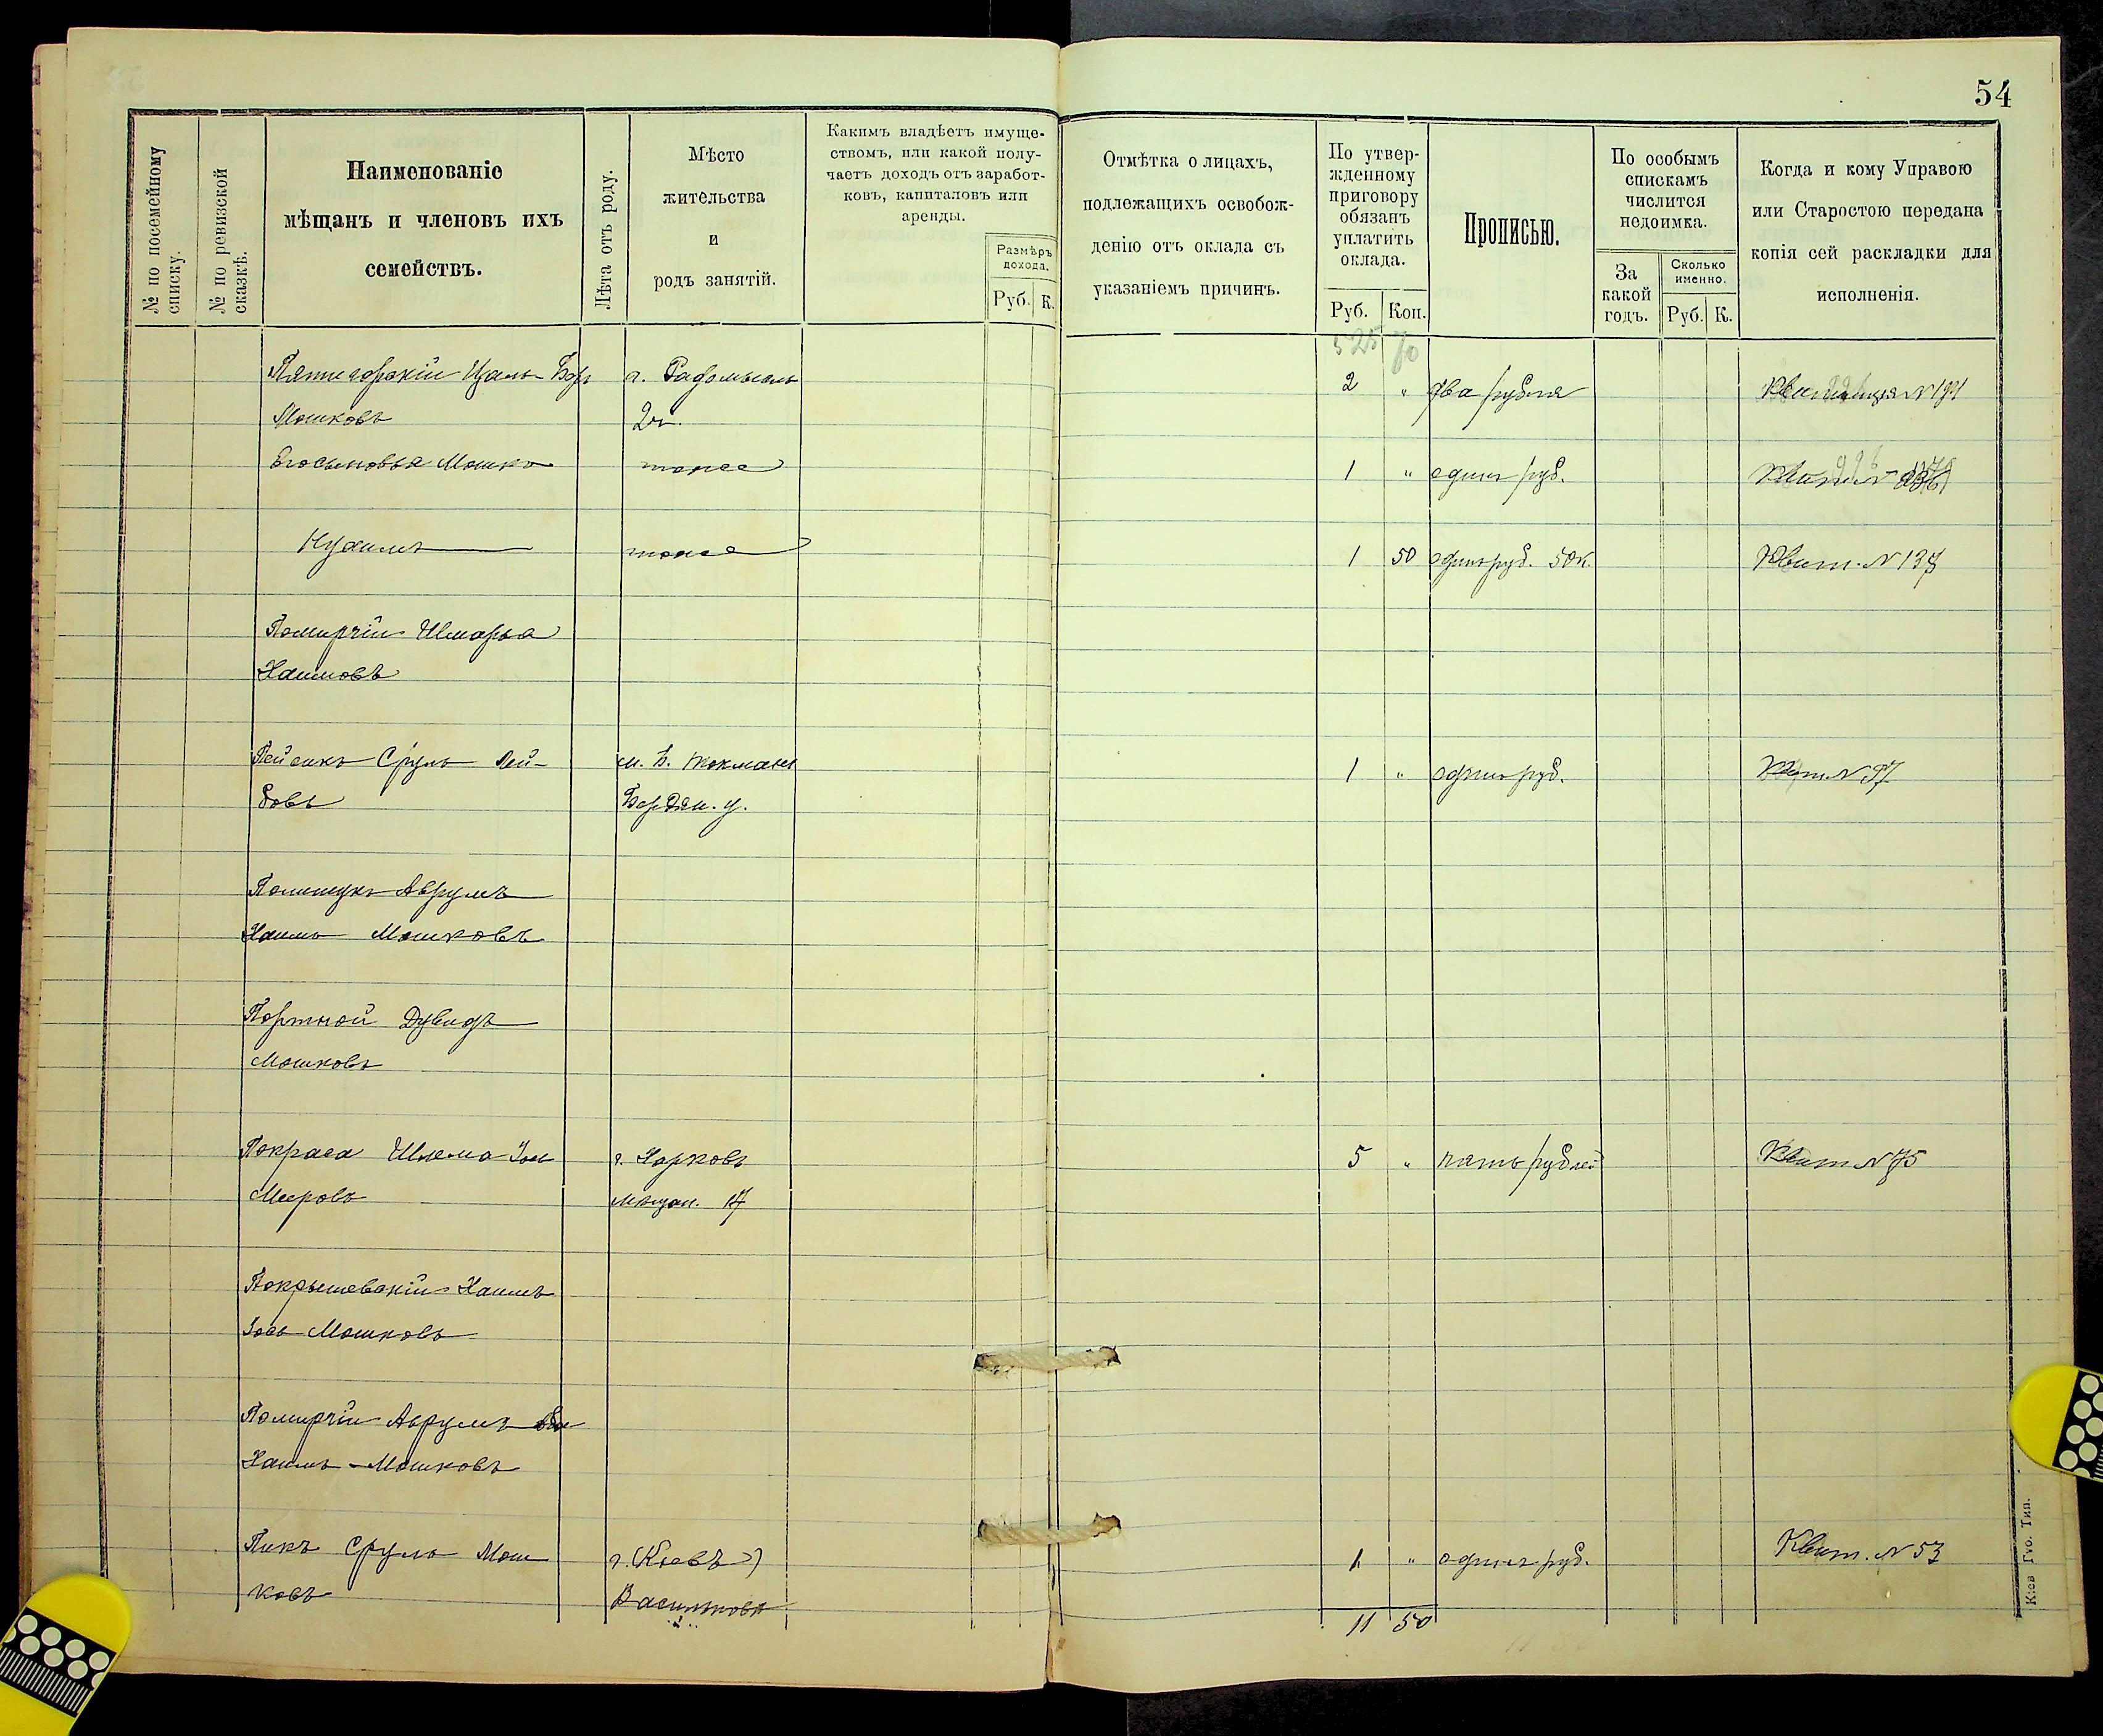 54
№ по посемейному списку.
№ по ревизской сказкѣ.
Наименованіе
мѣщанъ и членовъ ихъ
семействъ.
Лѣта отъ роду.
Мѣсто
жительства
и
родъ занятій.
Какимъ владѣетъ имуще-
ствомъ, или какой полу-
чаетъ доходъ отъ заработ-
ковъ, капиталовъ или
аренды.
Размѣръ
дохода.
Руб. К.
Отмѣтка о лицахъ,
подлежащихъ освобож-
денію отъ оклада съ
указаніемъ причинъ.
По утвер-
жденному
приговору
обязанъ
уплатить
оклада.
Руб. Коп.
Прописью.
По особымъ
спискамъ
числится
недоимка.
За
какой
годъ.
Сколько
именно.
Руб. К.
Когда и кому Управою
или Старостою передана
копія сей раскладки для
исполненія.
525 70
Пятигорскій Цаль-Бер г. Радомысль 2 " два рубля Квитанція № 191
Мошковъ
Его сыновья Мошко тоже 1 " одинъ руб.
Нухимъ тоже 1 50 одинъ руб. 50 к. Квит. № 137
Помирчій Шмарья
Хаимовъ
Пейсикъ Сруль Лей- м. Б. Токмакъ 1 " одинъ руб. Квит. № 97
бовъ Бердян. у.
Полищукъ Аврумъ
Хаимъ Мошковъ
Портной Дувидъ
Мошковъ
Покраса Шлема г. Харковъ 5 " пять рублей Квит № 75
Мееровъ мѣщан. 17
Покрышевскій Хаимъ
Іосъ Мошковъ
Помирчій Аврумъ
Хаимъ-Мошковъ
Пикъ Сруль Мош г. (Кіевъ) 1 " одинъ руб. Квит. № 53
ковъ Васильковъ
11 50
Кіев Гуо. Тип.